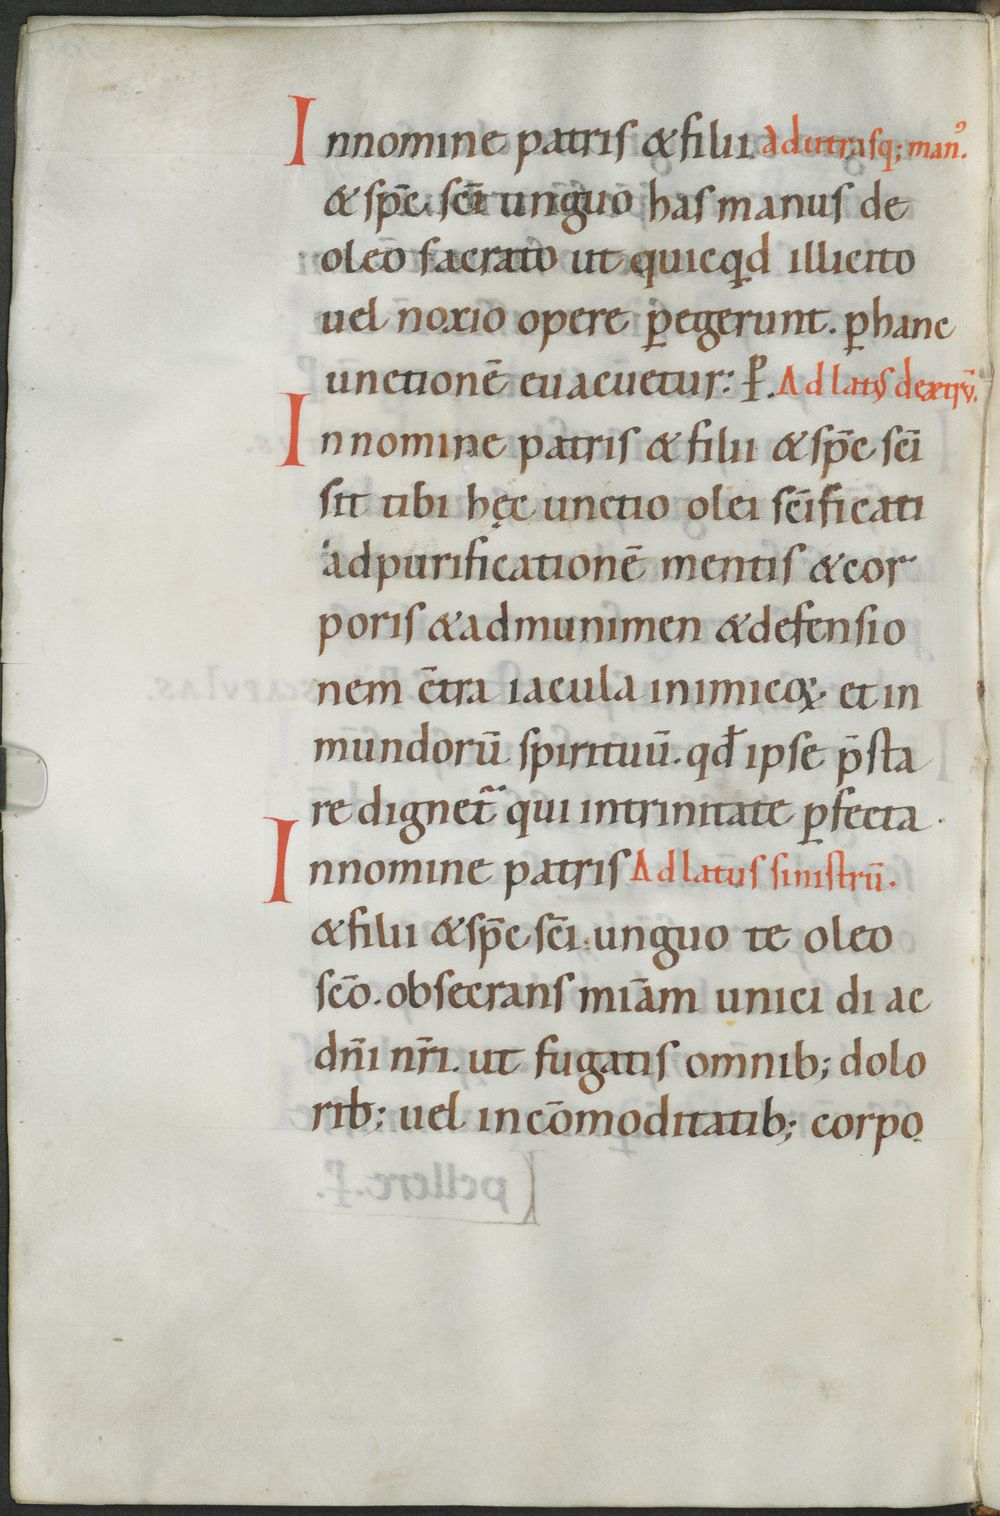 Innomine patris & filii. Adutrasq; man᾿.
& sp̄c sc̄i unguo has manus de
oleo sacrato ut quicq̣d illicito
uel noxio opere ꝑegerunt. ꝑhanc
unctionē euacuetur: ꝑ. Ad latus dextrū.
Innomine patris & filii & sp̄c sc̄i
sit tibi hęc unctio olei sc̄ificati
adpurificationē mentis & cor
poris & admunimen & defensio
nem c̄tra iacula inimicoꝝ. et in
mundorū spirituū. qđ ipse p̄sta
re dignet᷑ qui intrinitate ꝑfecta.
Innomine patris Ad latus sinistrū.
& filii & sp̄c sc̄i. unguo te oleo
sc̄o. obsecrans mīam unici di ac
dn̄i nr̄i. ut fugatis omnib; dolo
rib; uel incōmoditatib; corpo